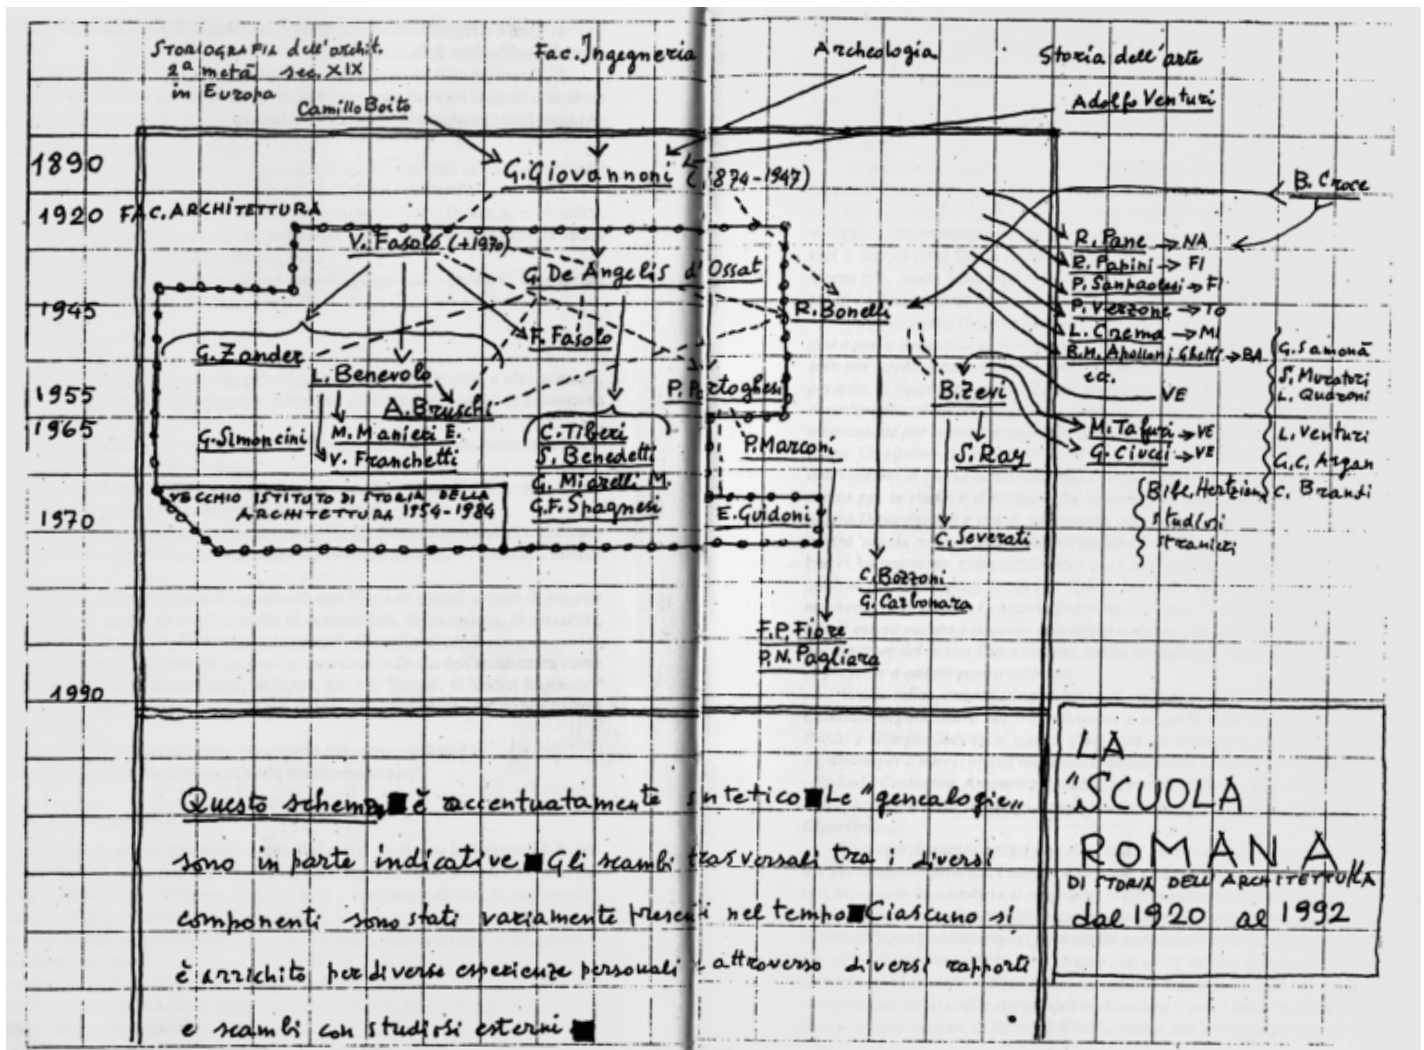 STORIOGRAFIA dell'archit.
2ª metà sec. XIX
in Europa
Camillo Boito
Fac. Ingegneria
Archeologia
Storia dell'arte
Adolfo Venturi
1890
G. Giovannoni (1874-1947)
B. Croce
1920
FAC. ARCHITETTURA
V. Fasolo (+1970)
G. De Angelis d'Ossat
R. Pane → NA
R. Papini → FI
P. Sanpaolesi → FI
P. Verzone → TO
L. Crema → MI
B.M. Apollonj Ghetti → BA
ec.
VE
M. Tafuri → VE
G. Ciucci → VE
1945
R. Bonelli
F. Fasolo
G. Zander
L. Benevolo
P. Portoghesi
B. Zevi
G. Samonà
S. Muratori
L. Quaroni
L. Venturi
G.C. Argan
C. Brandi
1955
A. Bruschi
1965
G. Simoncini
M. Manieri E.
V. Franchetti
C. Tiberi
S. Benedetti
G. Miarelli M.
G.F. Spagnesi
P. Marconi
S. Ray
Bibl. Hertzian
studiosi
stranieri
VECCHIO ISTITUTO DI STORIA DELLA
ARCHITETTURA 1954-1984
1970
E. Guidoni
C. Severati
C. Bozzoni
G. Carbonara
F.P. Fiore
P.N. Pagliara
1990
Questo schema ■ è accentuatamente sintetico ■ Le "genealogie"
sono in parte indicative ■ Gli scambi trasversali tra i diversi
componenti sono stati variamente presenti nel tempo ■ Ciascuno si
è arrichito per diverse esperienze personali e attraverso diversi rapporti
e scambi con studiosi esterni ■
LA
"SCUOLA
ROMANA"
DI STORIA DELL'ARCHITETTURA
dal 1920 al 1992